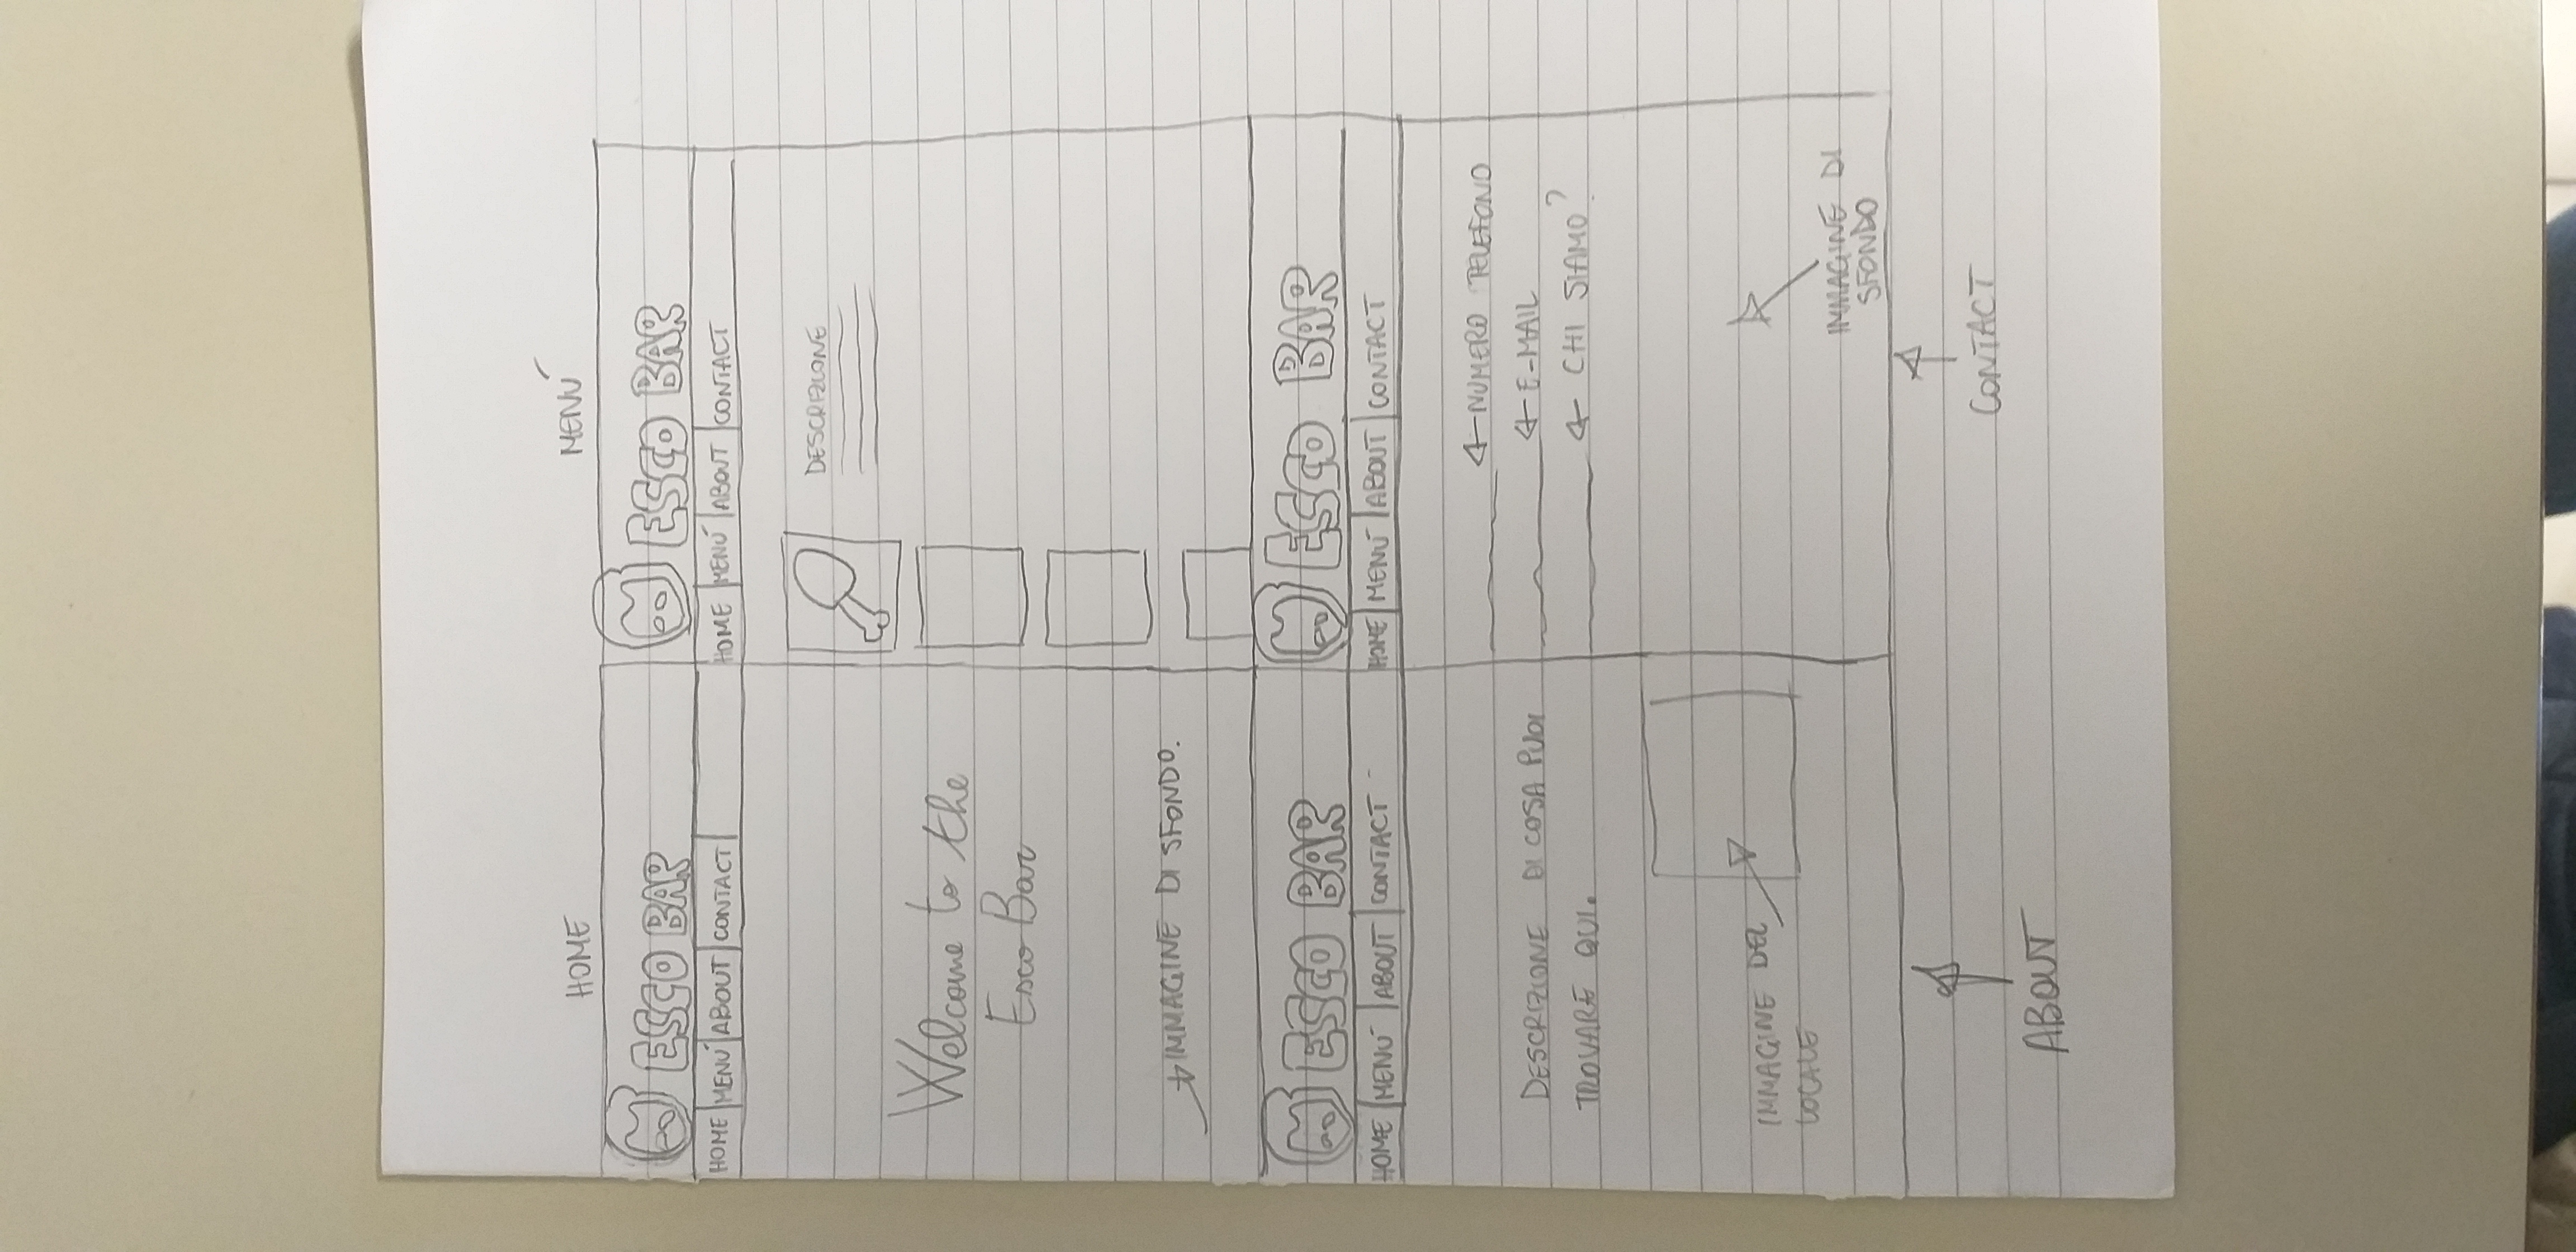 HOME
ESCO BAR
HOME MENÚ ABOUT CONTACT
Welcome to the
Esco Bar
IMMAGINE DI SFONDO.
MENÚ
ESCO BAR
HOME MENÚ ABOUT CONTACT
DESCRIZIONE
ESCO BAR
HOME MENÚ ABOUT CONTACT
DESCRIZIONE DI COSA PUOI
TROVARE QUI.
IMMAGINE DEL
LOCALE
ABOUT
ESCO BAR
HOME MENÚ ABOUT CONTACT
NUMERO TELEFONO
E-MAIL
CHI SIAMO?
IMMAGINE DI
SFONDO
CONTACT